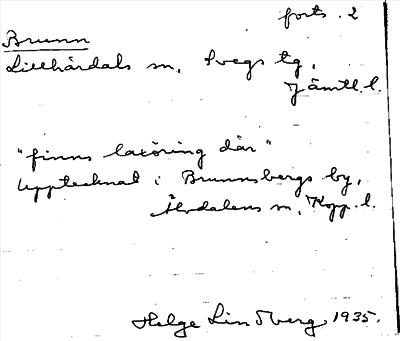 forts. 2
Brunn
Lillhärdals sn, Svegs tg,
Jämtl. l.
"finns laxöring där"
Upptecknat i Brunnsbergs by,
Älvdalens sn, Kopp. l.
Helge Lindberg 1935.